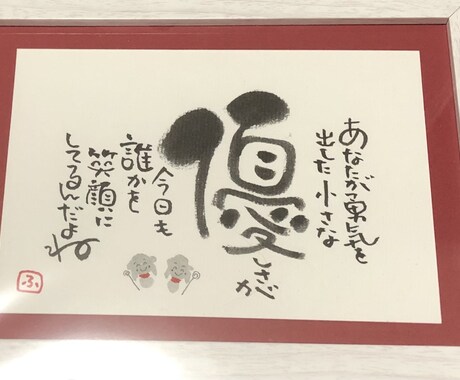 あなたが勇気を
出した小さな
優しさが
今日も
誰かを
笑顔に
してるんだよね
ふ